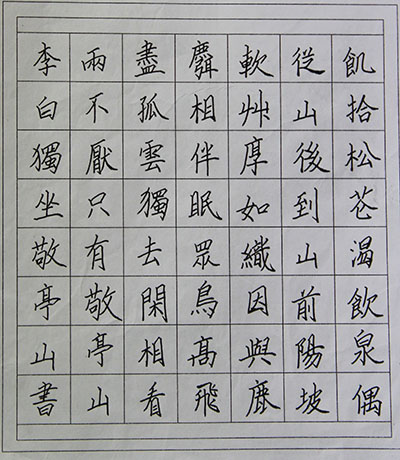 飢拾松花渴飲泉偶
從山後到山前陽坡
軟艸厚如織因與鹿
麛相伴眠眾鳥髙飛
盡孤雲獨去閑相看
兩不厭只有敬亭山
李白獨坐敬亭山書